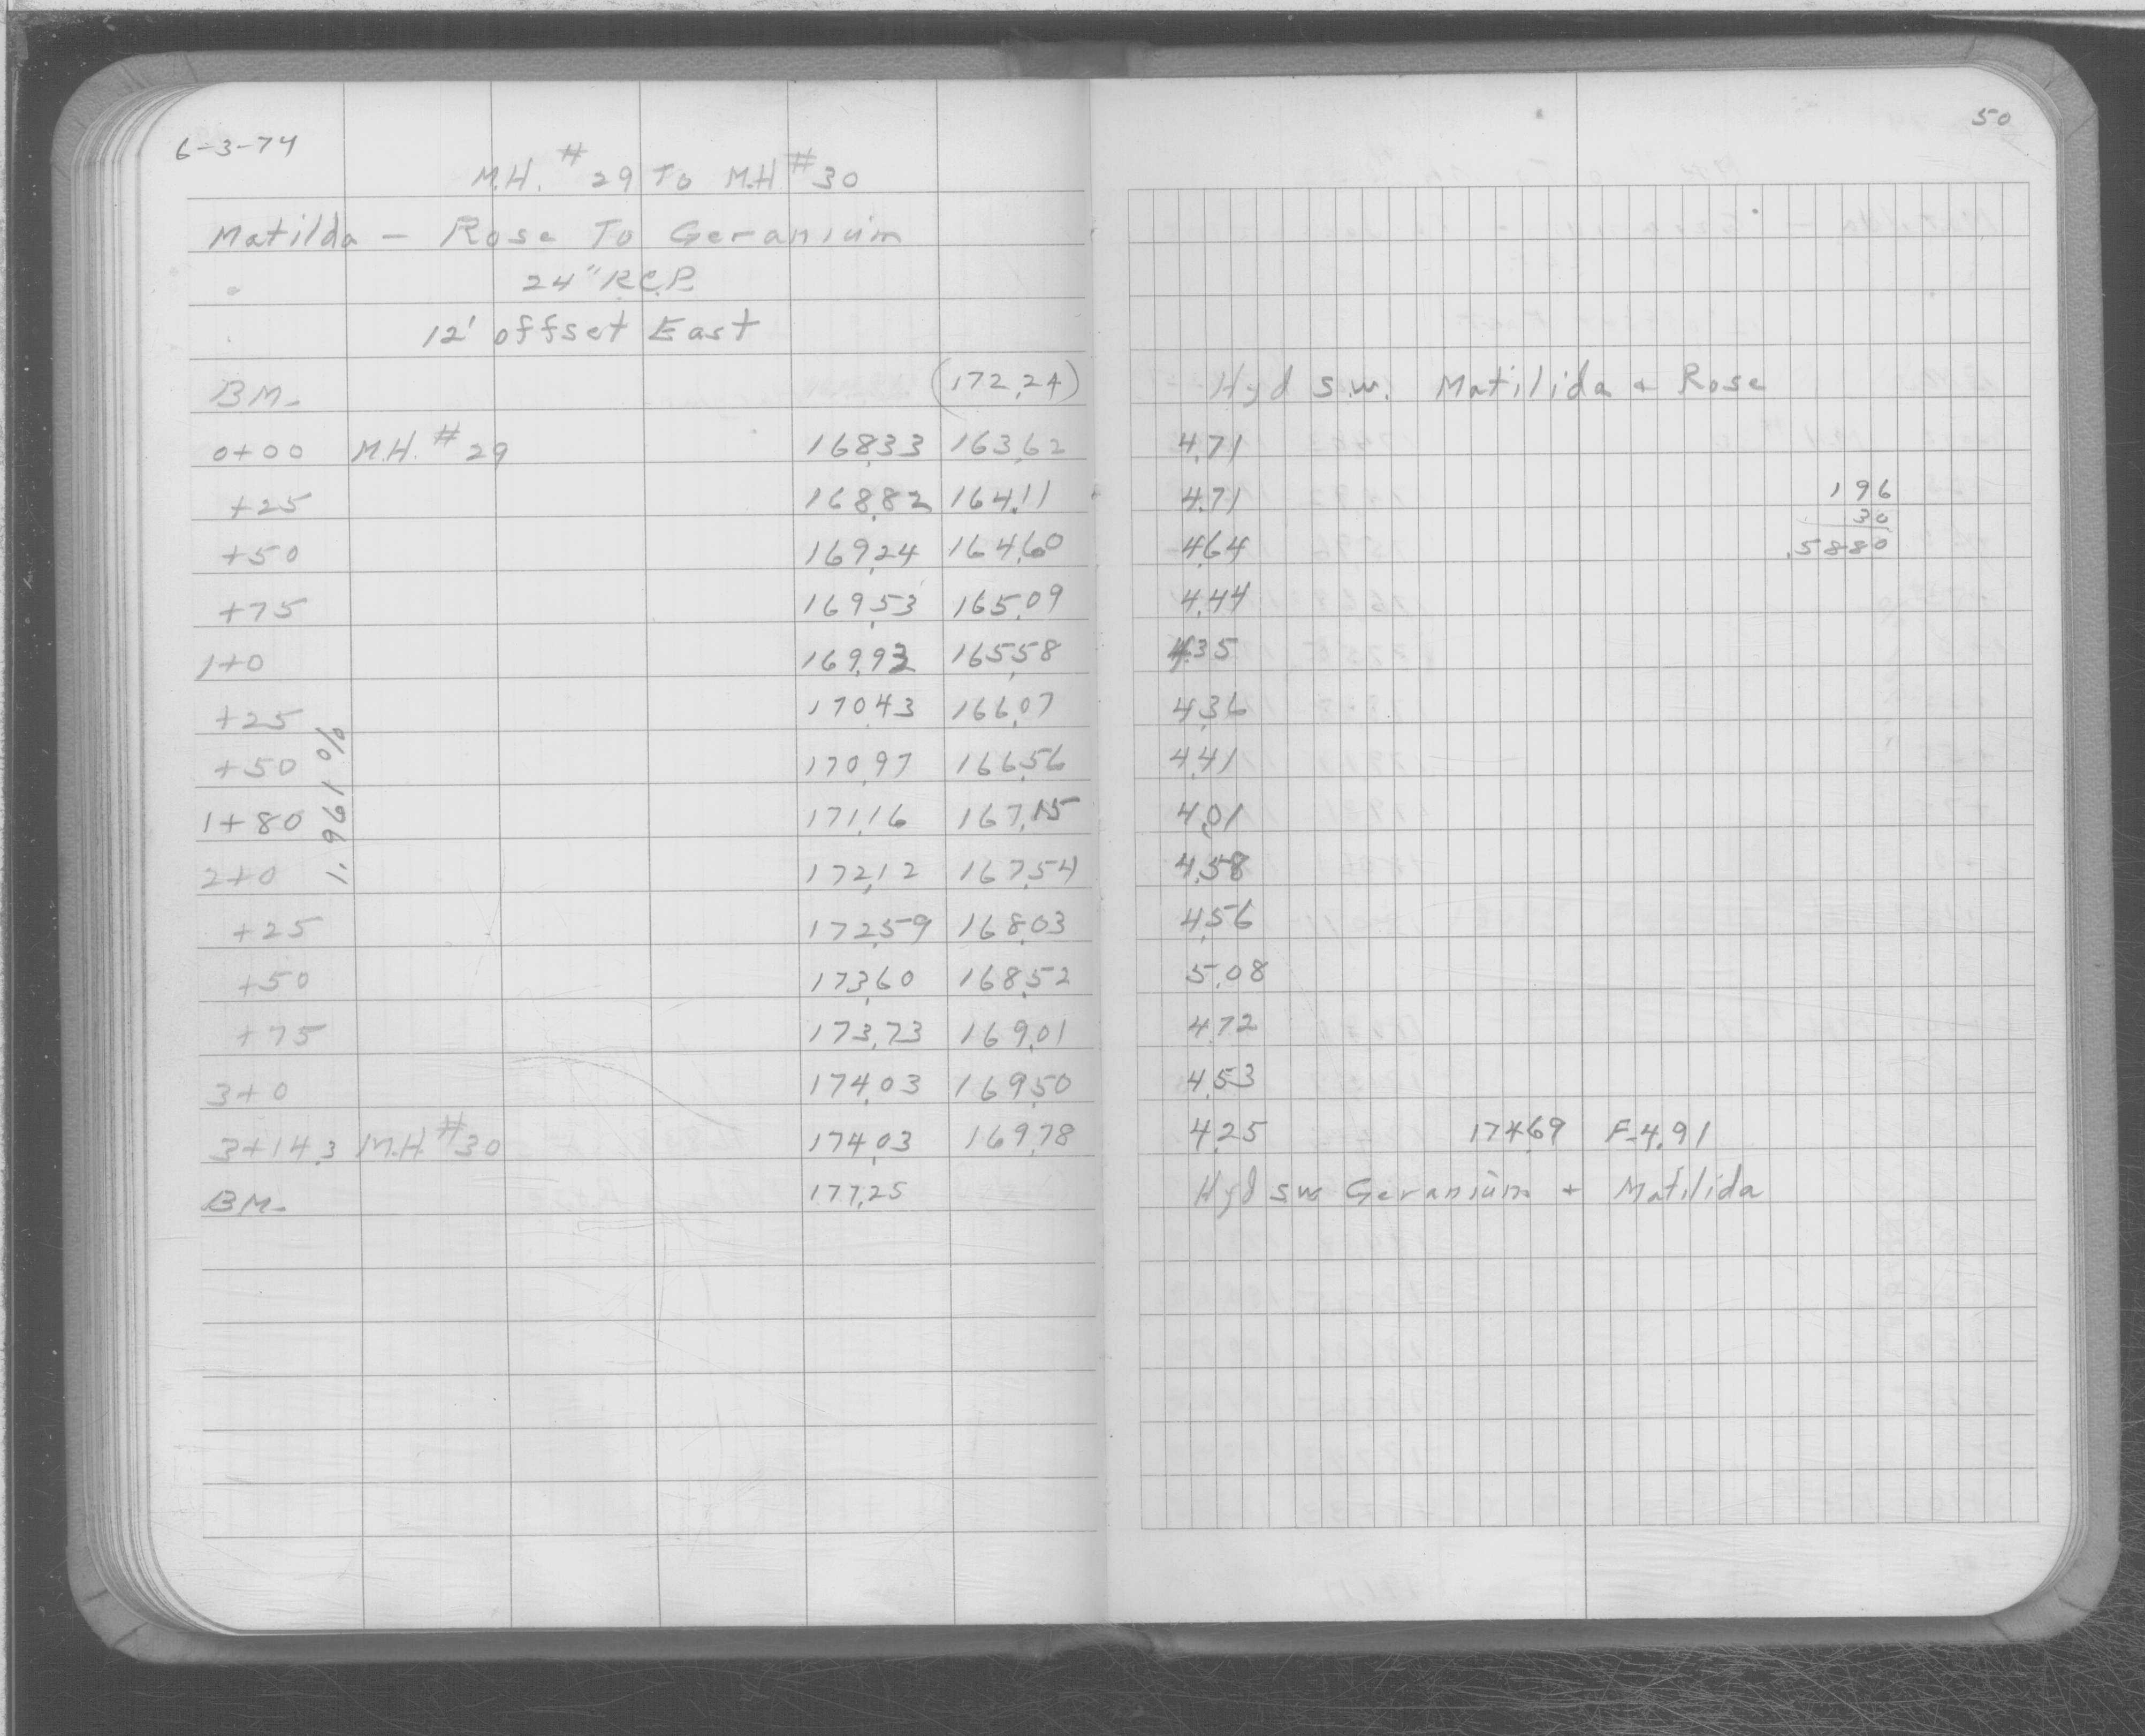 6-3-74
50
M.H. #29 To M.H #30
Matilda - Rose To Geranium
24" R.C.P.
12' offset East
BM. (172.24) Hyd S.W. Matilida + Rose
0+00 M.H. #29 168.33 163.62 4.71
+25 168.82 164.11 4.71 196
30
+50 169.24 164.60 4.64 .5880
+75 169.53 165.09 4.44
1+0 169.93 165.58 4.35
+25 170.43 166.07 4.36
+50 170.97 166.56 4.41
1+80 171.16 167.15 4.01
1.961%
2+0 172.12 167.54 4.58
+25 172.59 168.03 4.56
+50 173.60 168.52 5.08
+75 173.73 169.01 4.72
3+0 174.03 169.50 4.53
3+14.3 M.H. #30 174.03 169.78 4.25 174.69 F-4.91
BM. 177.25 Hyd sw Geranium + Matilida